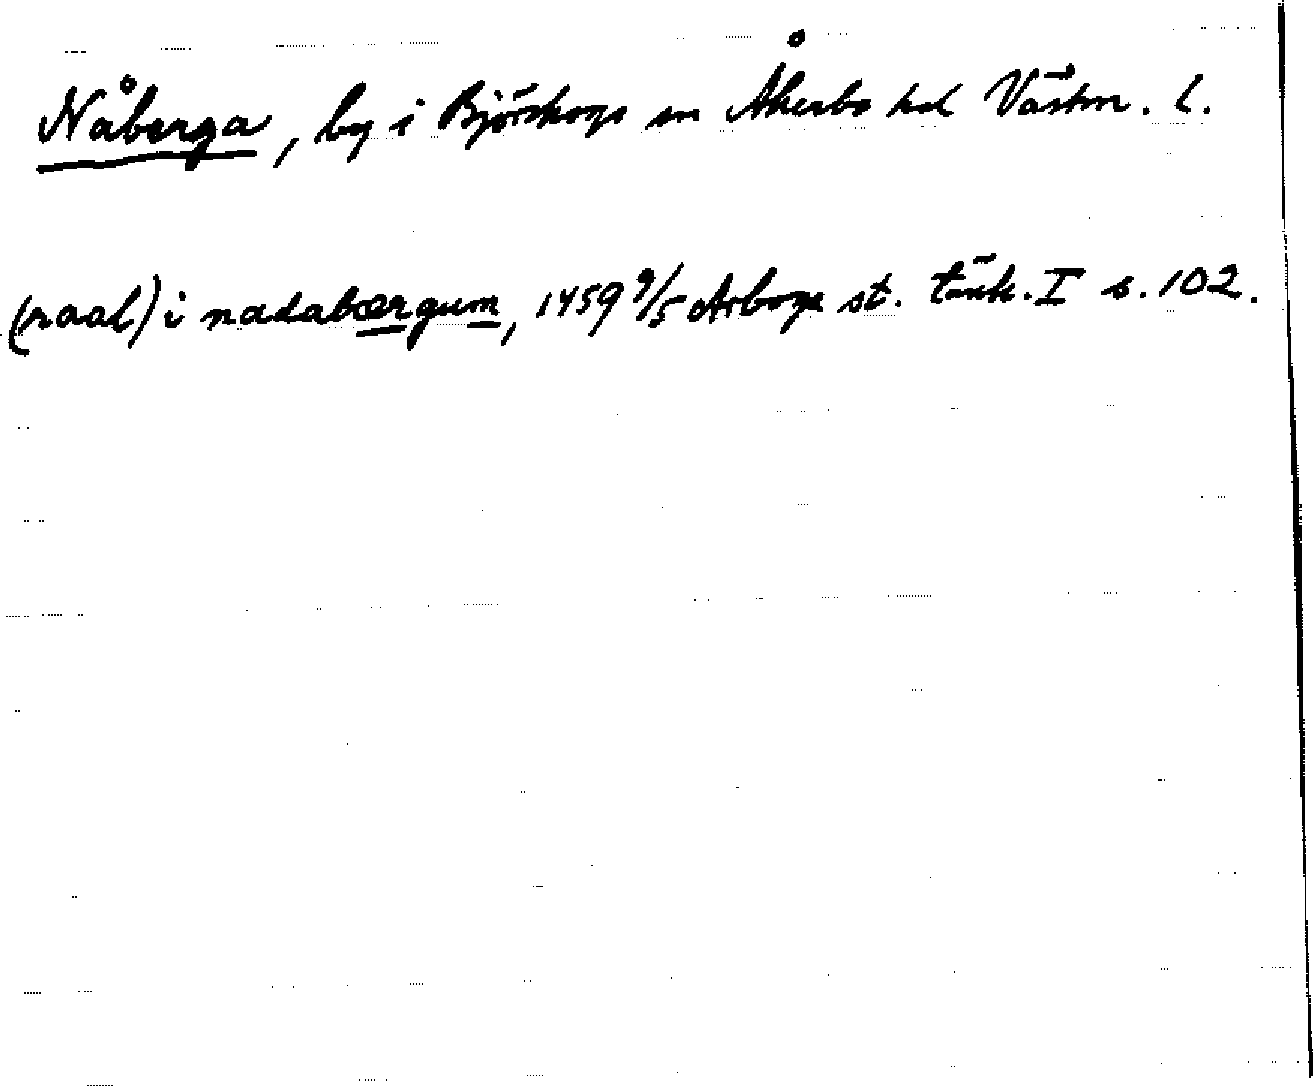 Nåberga, by i Björskogs sn Åkerbo hd Västm. l.
(naal) i nadabærgum, 1459 9/5 Arboga st. tänk. I s. 102.